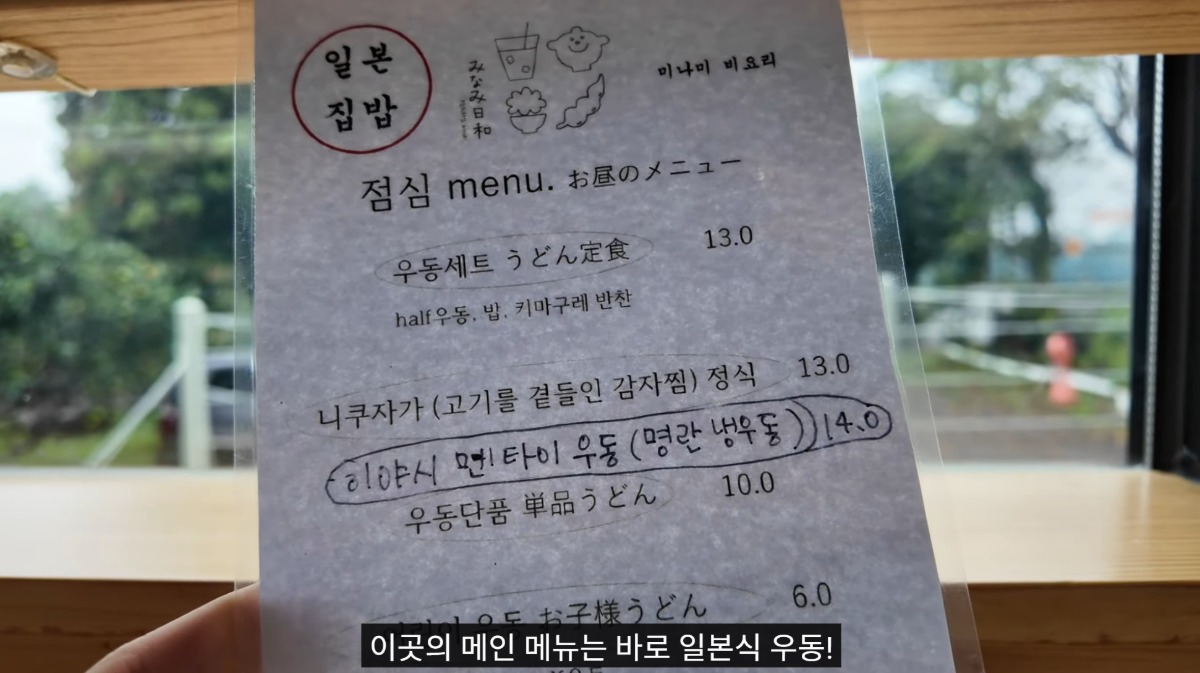 일본
집밥
みなみ日和
미나미 비요리
점심 menu. お昼のメニュー
우동세트 うどん定食 13.0
half우동, 밥, 키마구레 반찬
니쿠자가 (고기를 곁들인 감자찜) 정식 13.0
히야시 멘타이 우동 (명란 냉우동) 14.0
우동단품 単品うどん 10.0
우동 お子様うどん 6.0
이곳의 메인 메뉴는 바로 일본식 우동!